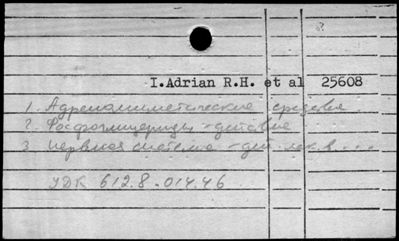 I.Adrian R.H. et al 25608
1. Адреномиметические средства
2. Фосфоглицериды - действие
3. Нервная система - дей. лек. в...
УДК 612.8.014.46